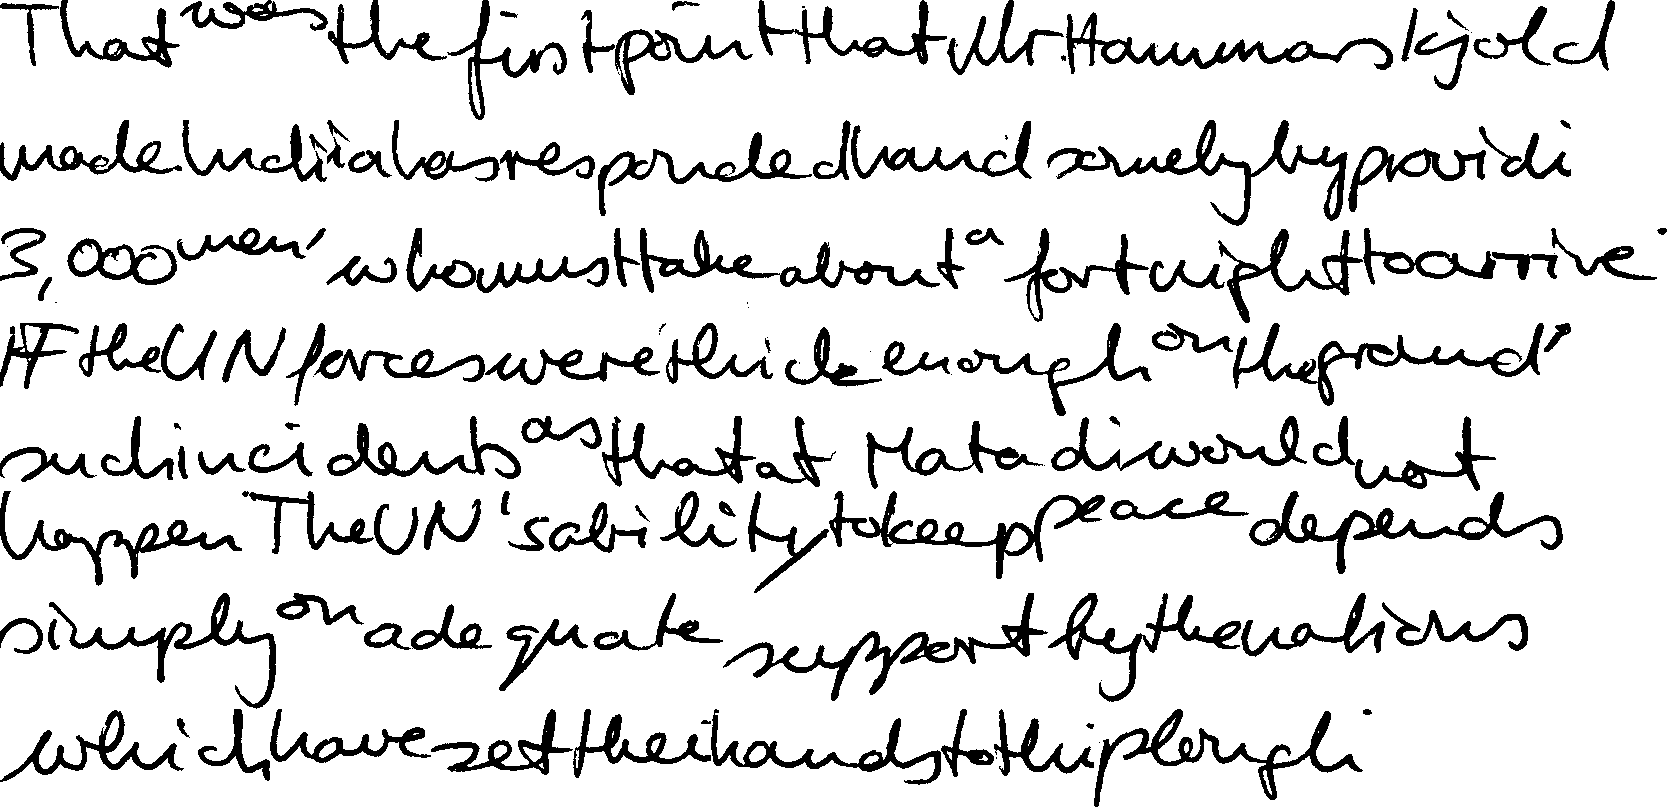 That was the first point that Mr. Hammarskjold
made. India has responded handsomely by providi
3,000 men, who must take about a fortnight to arrive.
If the UN forces were thick enough on the ground,
such incidents as that at Matadi would not
happen The UN's ability to keep peace depends
simply on adequate support by the nations
which have set their hands to this plough